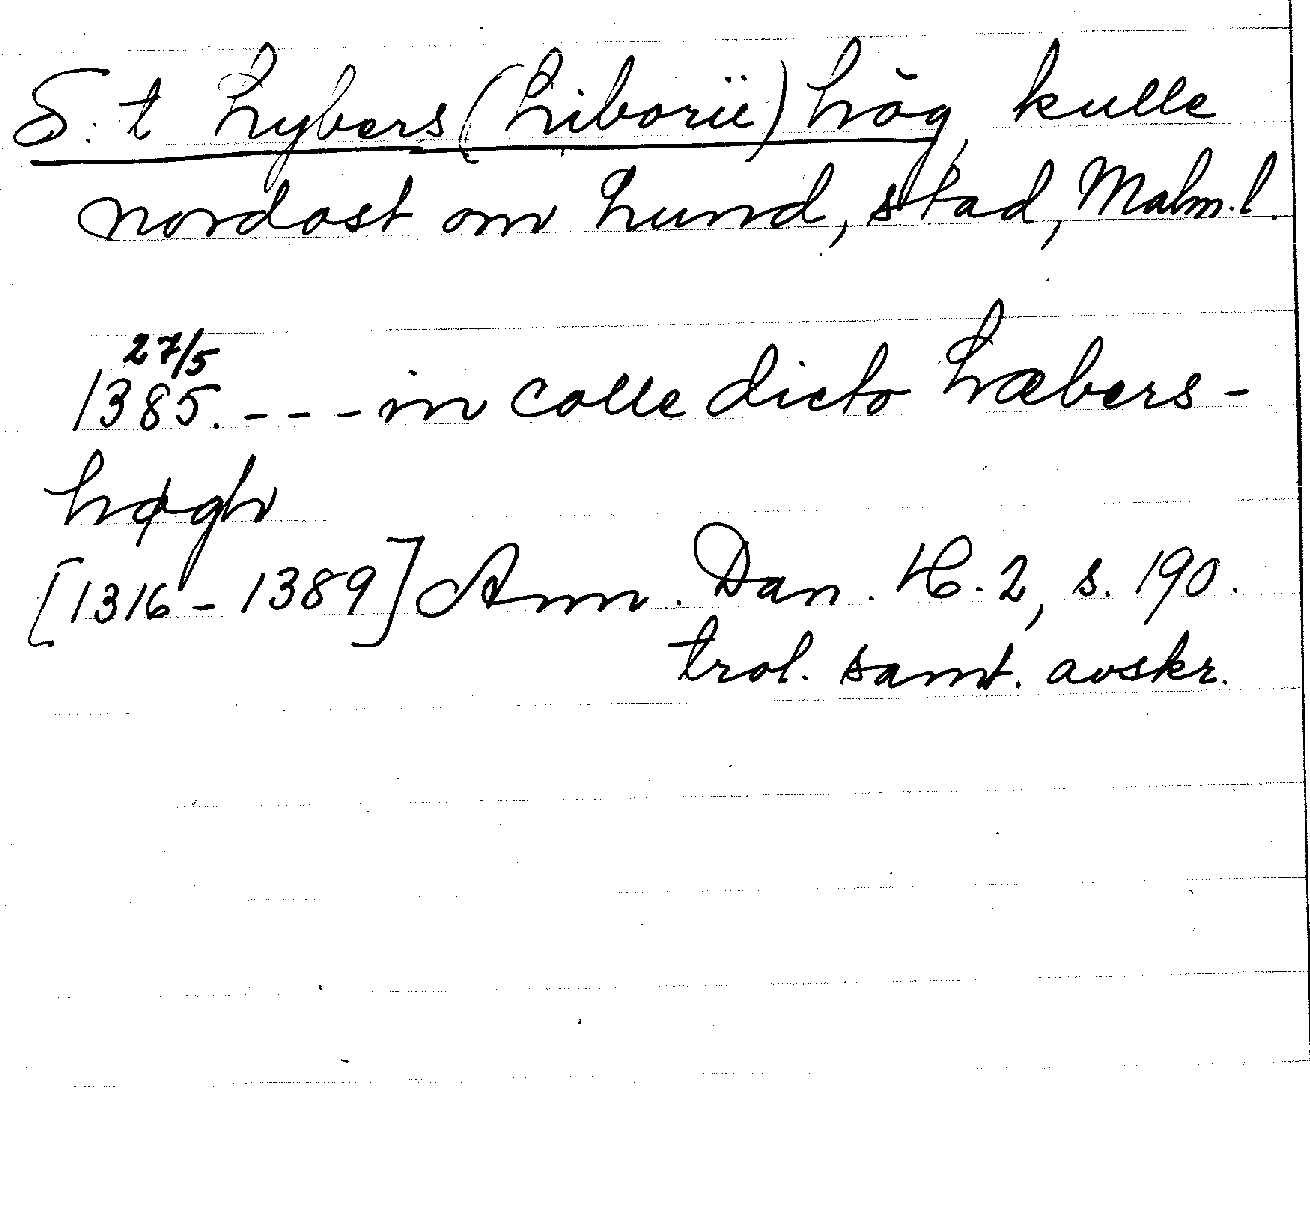 S:t Lybers (Liborii) hög, kulle
nordost om Lund, stad, Malm. l.
27/5
1385. - - - in colle dicto Læbers-
høgh
[1316 - 1389] Ann. Dan. H. 2, s. 190.
trol. samt. avskr.